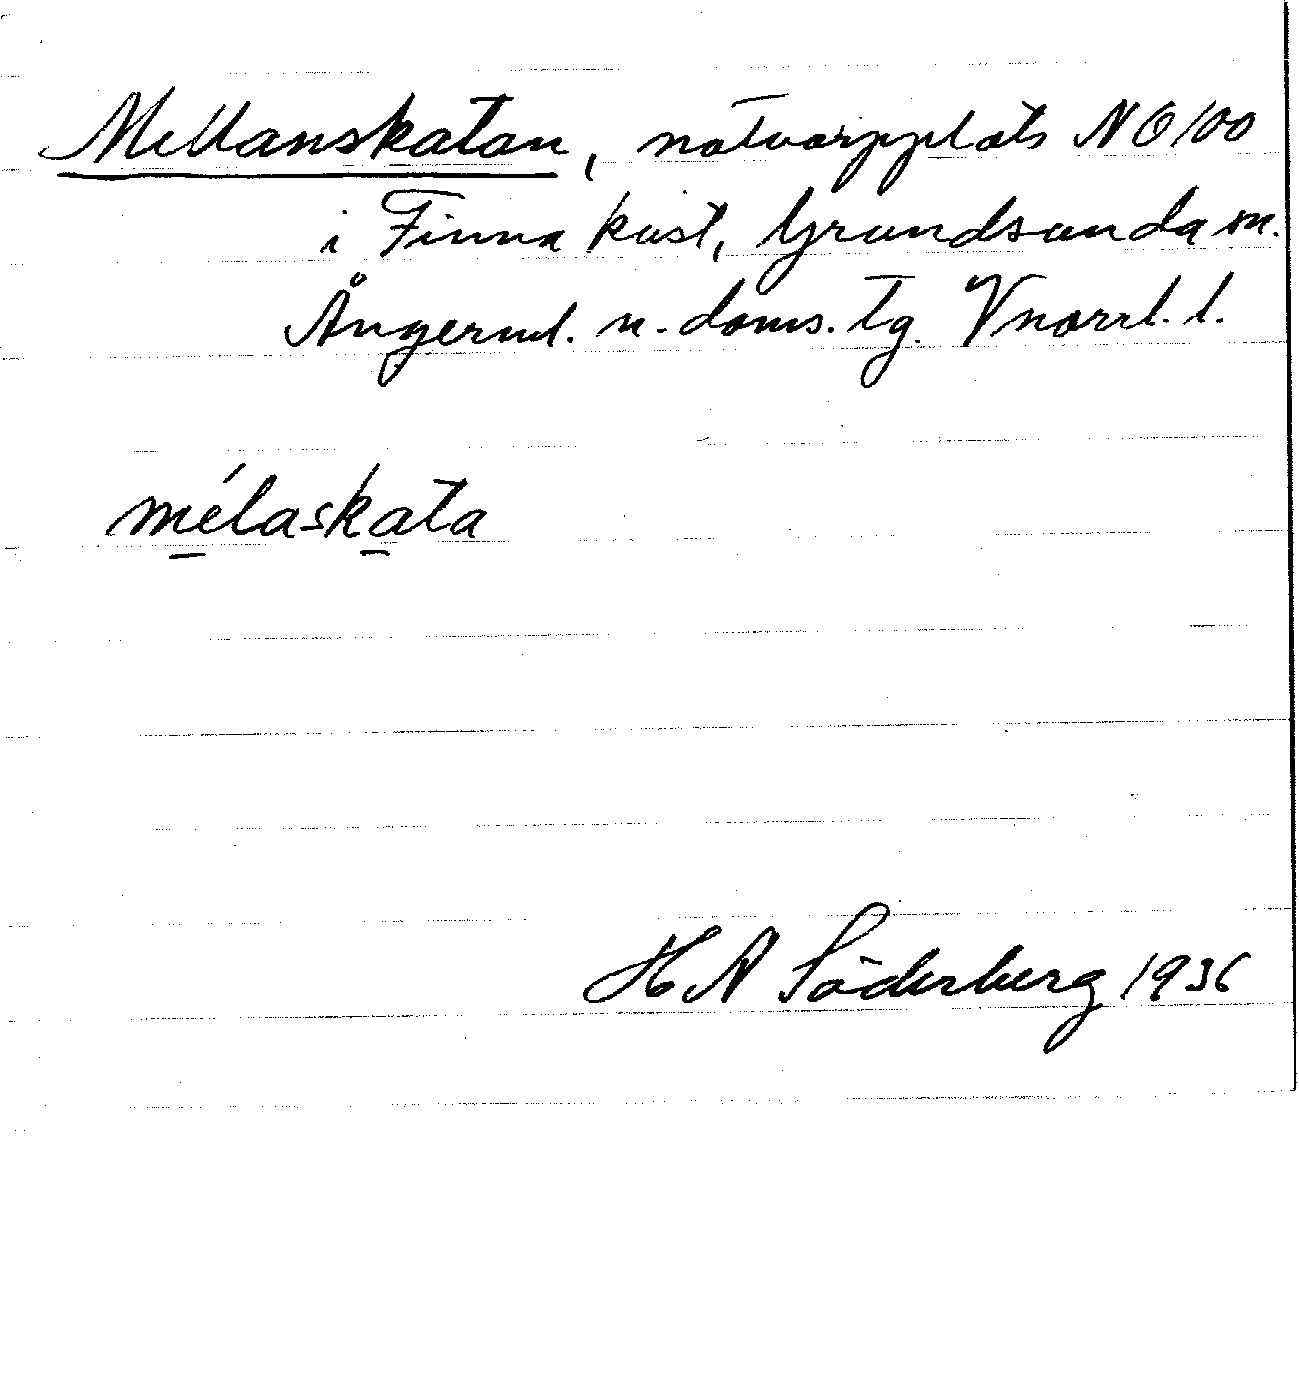 Mellanskatan, notvarpplats NO 100
i Finna kust, Grundsunda sn.
Ångerml. n. doms. tg. Vnorrl. l.
mélaskata
H A Söderberg 1936